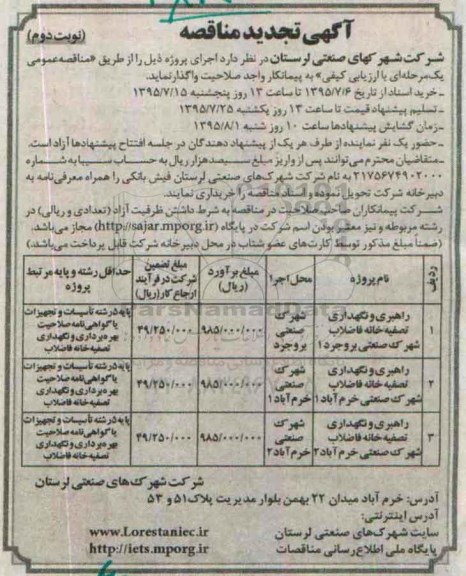 آگهی تجدید مناقصه
(نوبت دوم)
شرکت شهرکهای صنعتی لرستان در نظر دارد اجرای پروژه ذیل را از طریق «مناقصه عمومی
یک مرحله‌ای با ارزیابی کیفی» به پیمانکار واجد صلاحیت واگذار نماید.
ـ خرید اسناد از تاریخ ۱۳۹۵/۷/۶ تا ساعت ۱۳ روز پنجشنبه ۱۳۹۵/۷/۱۵
ـ تسلیم پیشنهاد قیمت تا ساعت ۱۳ روز یکشنبه ۱۳۹۵/۷/۲۵
ـ زمان گشایش پیشنهادها ساعت ۱۰ روز شنبه ۱۳۹۵/۸/۱
ـ حضور یک نفر نماینده از طرف هر یک از پیشنهاد دهندگان در جلسه افتتاح پیشنهادها آزاد است.
ـ متقاضیان محترم می‌توانند پس از واریز مبلغ سیصدهزار ریال به حساب سیبا به شماره
۲۱۷۵۶۷۴۹۰۲۰۰۰ به نام شرکت شهرک‌های صنعتی لرستان فیش بانکی را همراه معرفی‌نامه به
دبیرخانه شرکت تحویل نموده و اسناد مناقصه را خریداری نمایند.
شرکت پیمانکاران صاحب صلاحیت در مناقصه به شرط داشتن ظرفیت آزاد (تعدادی و ریالی) در
رشته مربوطه و نیز معتبر بودن اسم شرکت در پایگاه (http://sajar.mporg.ir) مجاز می‌باشد.
(ضمناً مبلغ مذکور توسط کارت‌های عضو شتاب در محل دبیرخانه شرکت قابل پرداخت می‌باشد.)
ردیف نام پروژه محل اجرا مبلغ برآورد (ریال) مبلغ تضمین شرکت در فرآیند ارجاع کار (ریال) حداقل رشته و پایه مرتبط پروژه
۱ راهبری و نگهداری تصفیه خانه فاضلاب شهرک صنعتی بروجرد ۱ شهرک صنعتی بروجرد ۹۸۵/۰۰۰/۰۰۰ ۴۹/۲۵۰/۰۰۰ پایه ۵ رشته تأسیسات و تجهیزات یا گواهی نامه صلاحیت بهره برداری و نگهداری تصفیه خانه فاضلاب
۲ راهبری و نگهداری تصفیه خانه فاضلاب شهرک صنعتی خرم آباد ۱ شهرک صنعتی خرم آباد ۱ ۹۸۵/۰۰۰/۰۰۰ ۴۹/۲۵۰/۰۰۰ پایه ۵ رشته تأسیسات و تجهیزات یا گواهی نامه صلاحیت بهره برداری و نگهداری تصفیه خانه فاضلاب
۳ راهبری و نگهداری تصفیه خانه فاضلاب شهرک صنعتی خرم آباد ۲ شهرک صنعتی خرم آباد ۲ ۹۸۵/۰۰۰/۰۰۰ ۴۹/۲۵۰/۰۰۰ پایه ۵ رشته تأسیسات و تجهیزات یا گواهی نامه صلاحیت بهره برداری و نگهداری تصفیه خانه فاضلاب
شرکت شهرک‌های صنعتی لرستان
آدرس: خرم آباد میدان ۲۲ بهمن بلوار مدیریت پلاک ۵۱ و ۵۳
آدرس اینترنتی:
سایت شهرک‌های صنعتی لرستان www.Lorestaniec.ir
پایگاه ملی اطلاع رسانی مناقصات http://iets.mporg.ir